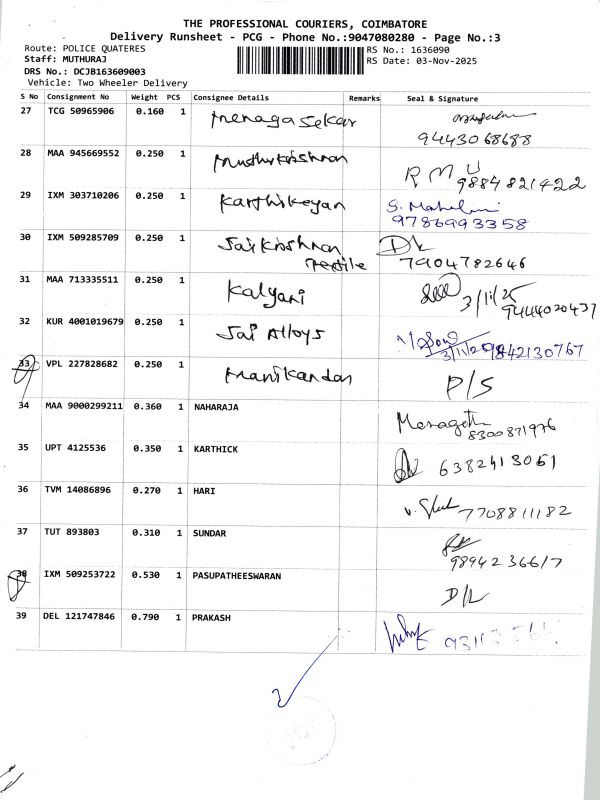 THE PROFESSIONAL COURIERS, COIMBATORE
Delivery Runsheet - PCG - Phone No.:9047080280 - Page No.:3
Route: POLICE QUATERES RS No.: 1636090
Staff: MUTHURAJ RS Date: 03-Nov-2025
DRS No.: DCJB163609003
Vehicle: Two Wheeler Delivery
S No Consignment No Weight PCS Consignee Details Remarks Seal & Signature
27 TCG 50965906 0.160 1 Menagasekar
9443068688
28 MAA 945669552 0.250 1 Muthukrishnan RMU
9884821422
29 IXM 303710206 0.250 1 Karthikeyan S.
9786993358
30 IXM 509285709 0.250 1 Jaikrishnan textile
7904782646
31 MAA 713335511 0.250 1 Kalyani 3/11/25
9444020437
32 KUR 4001019679 0.250 1 Jai Alloys
3/11/25 9842130767
33 VPL 227828682 0.250 1 Manikandan P/S
34 MAA 9000299211 0.360 1 NAHARAJA
8300871976
35 UPT 4125536 0.350 1 KARTHICK 6382413061
36 TVM 14086896 0.270 1 HARI 7708811182
37 TUT 893803 0.310 1 SUNDAR
9894236617
38 IXM 509253722 0.530 1 PASUPATHEESWARAN D/L
39 DEL 121747846 0.790 1 PRAKASH